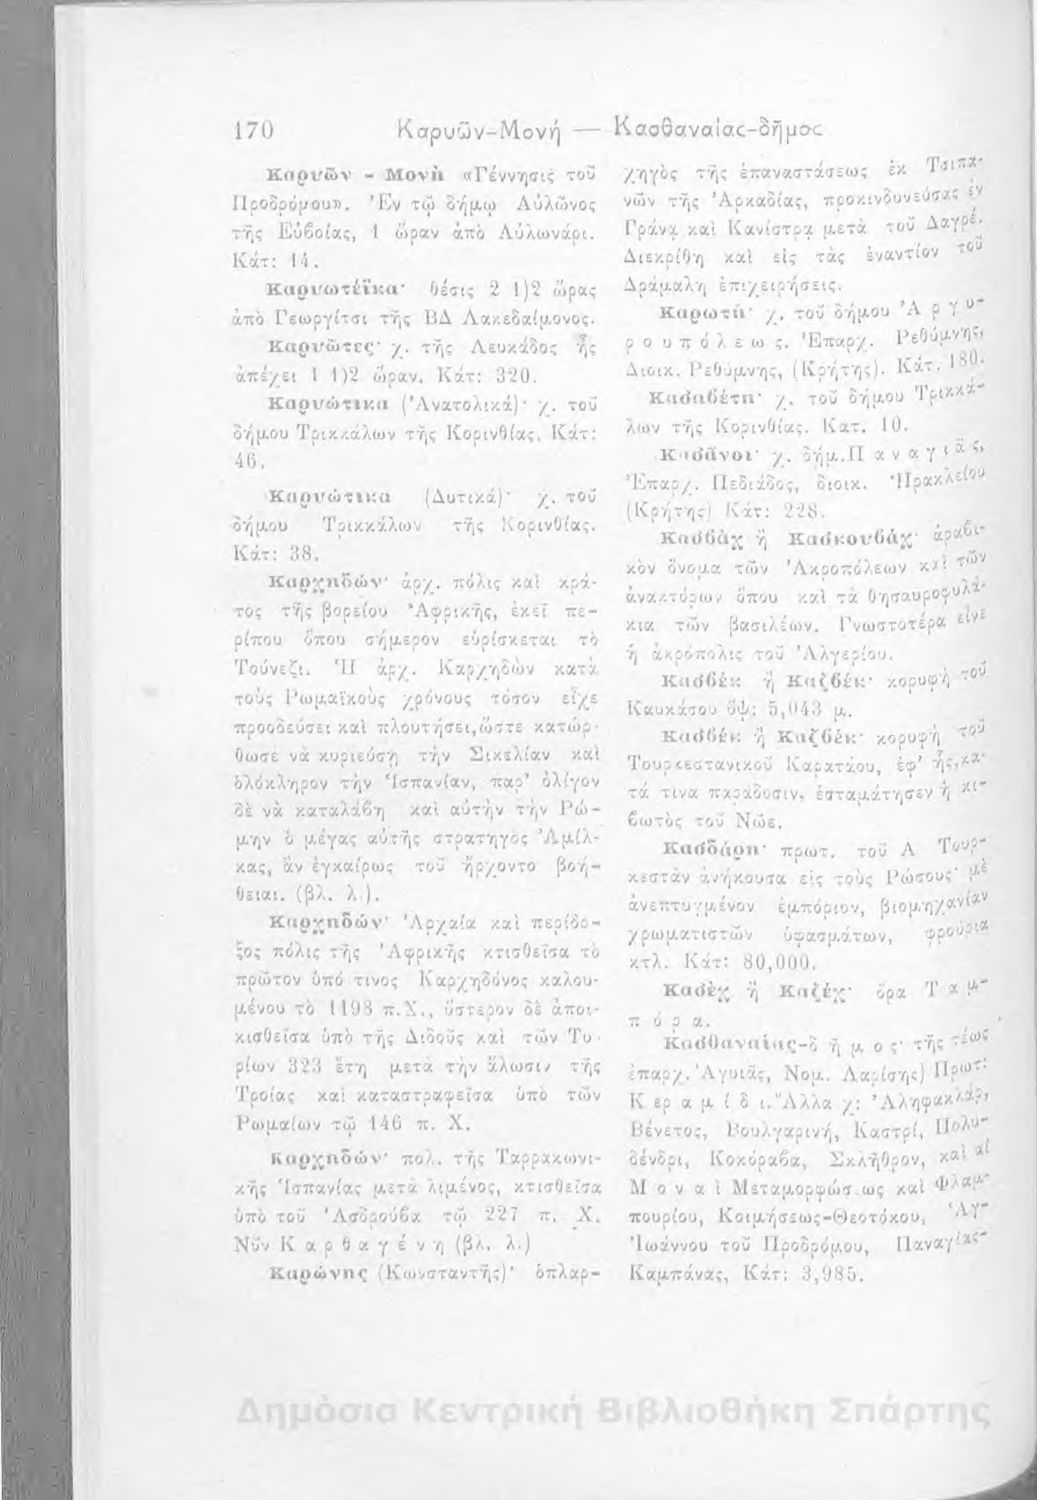 170 Καρυῶν-Μονή — Κασθαναίας-δῆμος
Καρυῶν - Μονὴ «Γέννησις τοῦ
Προδρόμου». Ἐν τῷ δήμῳ Αὐλῶνος
τῆς Εὐβοίας, 1 ὥραν ἀπὸ Αὐλωνάρι.
Κάτ: 14.
Καρυωτέϊκα· θέσις 2 1)2 ὥρας
ἀπὸ Γεωργίτσι τῆς ΒΔ Λακεδαίμονος.
Καρυῶτες· χ. τῆς Λευκάδος ἧς
ἀπέχει 1 1)2 ὥραν. Κάτ: 320.
Καρυώτικα (Ἀνατολικά)· χ. τοῦ
δήμου Τρικκάλων τῆς Κορινθίας. Κάτ:
46.
Καρυώτικα (Δυτικά)· χ. τοῦ
δήμου Τρικκάλων τῆς Κορινθίας.
Κάτ: 38.
Καρχηδών· ἀρχ. πόλις καὶ κρά-
τος τῆς βορείου Ἀφρικῆς, ἐκεῖ πε-
ρίπου ὅπου σήμερον εὑρίσκεται τὸ
Τούνεζι. Ἡ ἀρχ. Καρχηδὼν κατὰ
τοὺς Ῥωμαϊκοὺς χρόνους τόσον εἶχε
προοδεύσει καὶ πλουτήσει,ὥστε κατώρ-
θωσε νὰ κυριεύσῃ τὴν Σικελίαν καὶ
ὁλόκληρον τὴν Ἱσπανίαν, παρ' ὀλίγον
δὲ νὰ καταλάβῃ καὶ αὐτὴν τὴν Ῥώ-
μην ὁ μέγας αὐτῆς στρατηγὸς Ἀμίλ-
κας, ἂν ἐγκαίρως τοῦ ἤρχοντο βοή-
θειαι. (βλ. λ.).
Καρχηδών· Ἀρχαία καὶ περίδο-
ξος πόλις τῆς Ἀφρικῆς κτισθεῖσα τὸ
πρῶτον ὑπό τινος Καρχηδόνος καλου-
μένου τὸ 1198 π.Χ., ὕστερον δὲ ἀποι-
κισθεῖσα ὑπὸ τῆς Διδοῦς καὶ τῶν Τυ-
ρίων 323 ἔτη μετὰ τὴν ἅλωσιν τῆς
Τροίας καὶ καταστραφεῖσα ὑπὸ τῶν
Ῥωμαίων τῷ 146 π. Χ.
Καρχηδών· πολ. τῆς Ταρρακωνι-
κῆς Ἱσπανίας μετὰ λιμένος, κτισθεῖσα
ὑπὸ τοῦ Ἀσδρούβα τῷ 227 π. Χ.
Νῦν Καρθαγένη (βλ. λ.)
Καρώνης (Κωνσταντῆς)· ὁπλαρ-
χηγὸς τῆς ἐπαναστάσεως ἐκ Τσιπα-
νῶν τῆς Ἀρκαδίας, προκινδυνεύσας ἐν
Γράνᾳ καὶ Κανίστρᾳ μετὰ τοῦ Δαγρέ.
Διεκρίθη καὶ εἰς τὰς ἐναντίον τοῦ
Δράμαλη ἐπιχειρήσεις.
Καρωτή· χ. τοῦ δήμου Ἀργυ-
ρουπόλεως. Ἐπαρχ. Ρεθύμνης,
Διοικ. Ρεθύμνης, (Κρήτης). Κάτ. 180.
Κασαβέτη· χ. τοῦ δήμου Τρικκά-
λων τῆς Κορινθίας. Κατ. 10.
Κασᾶνοι· χ. δήμ.Παναγιᾶς,
Ἐπαρχ. Πεδιάδος, διοικ. Ἡρακλείου
(Κρήτης) Κάτ: 228.
Κασβὰχ ἢ Κασκουβάχ· ἀραβι-
κὸν ὄνομα τῶν Ἀκροπόλεων καὶ τῶν
ἀνακτόρων ὅπου καὶ τὰ θησαυροφυλά-
κια τῶν βασιλέων. Γνωστοτέρα εἶνε
ἡ ἀκρόπολις τοῦ Ἀλγερίου.
Κασβέκ ἢ Καζβέκ· κορυφὴ τοῦ
Καυκάσου ὕψ: 5,043 μ.
Κασβέκ ἢ Καζβέκ· κορυφὴ τοῦ
Τουρκεστανικοῦ Καρατάου, ἐφ' ἧς,κα-
τά τινα παράδοσιν, ἐσταμάτησεν ἡ κι-
βωτὸς τοῦ Νῶε.
Κασδάρη· πρωτ. τοῦ Α Τουρ-
κεστὰν ἀνήκουσα εἰς τοὺς Ρώσους· μὲ
ἀνεπτυγμένον ἐμπόριον, βιομηχανίαν
χρωματιστῶν ὑφασμάτων, φρούρια
κτλ. Κάτ: 80,000.
Κασὲχ ἢ Καζέχ· ὅρα Ταμ-
πόρα.
Κασθαναίας-δῆμος· τῆς τέως
ἐπαρχ. Ἀγυιᾶς, Νομ. Λαρίσης) Πρωτ:
Κεραμίδι. Ἄλλα χ: Ἀληφακλάρ,
Βένετος, Βουλγαρινή, Καστρί, Πολυ-
δένδρι, Κοκόραβα, Σκλῆθρον, καὶ αἱ
Μοναὶ Μεταμορφώσεως καὶ Φλαμ-
πουρίου, Κοιμήσεως-Θεοτόκου, Ἁγ-
Ἰωάννου τοῦ Προδρόμου, Παναγίας-
Καμπάνας, Κάτ: 3,985.
Δημόσια Κεντρική Βιβλιοθήκη Σπάρτης